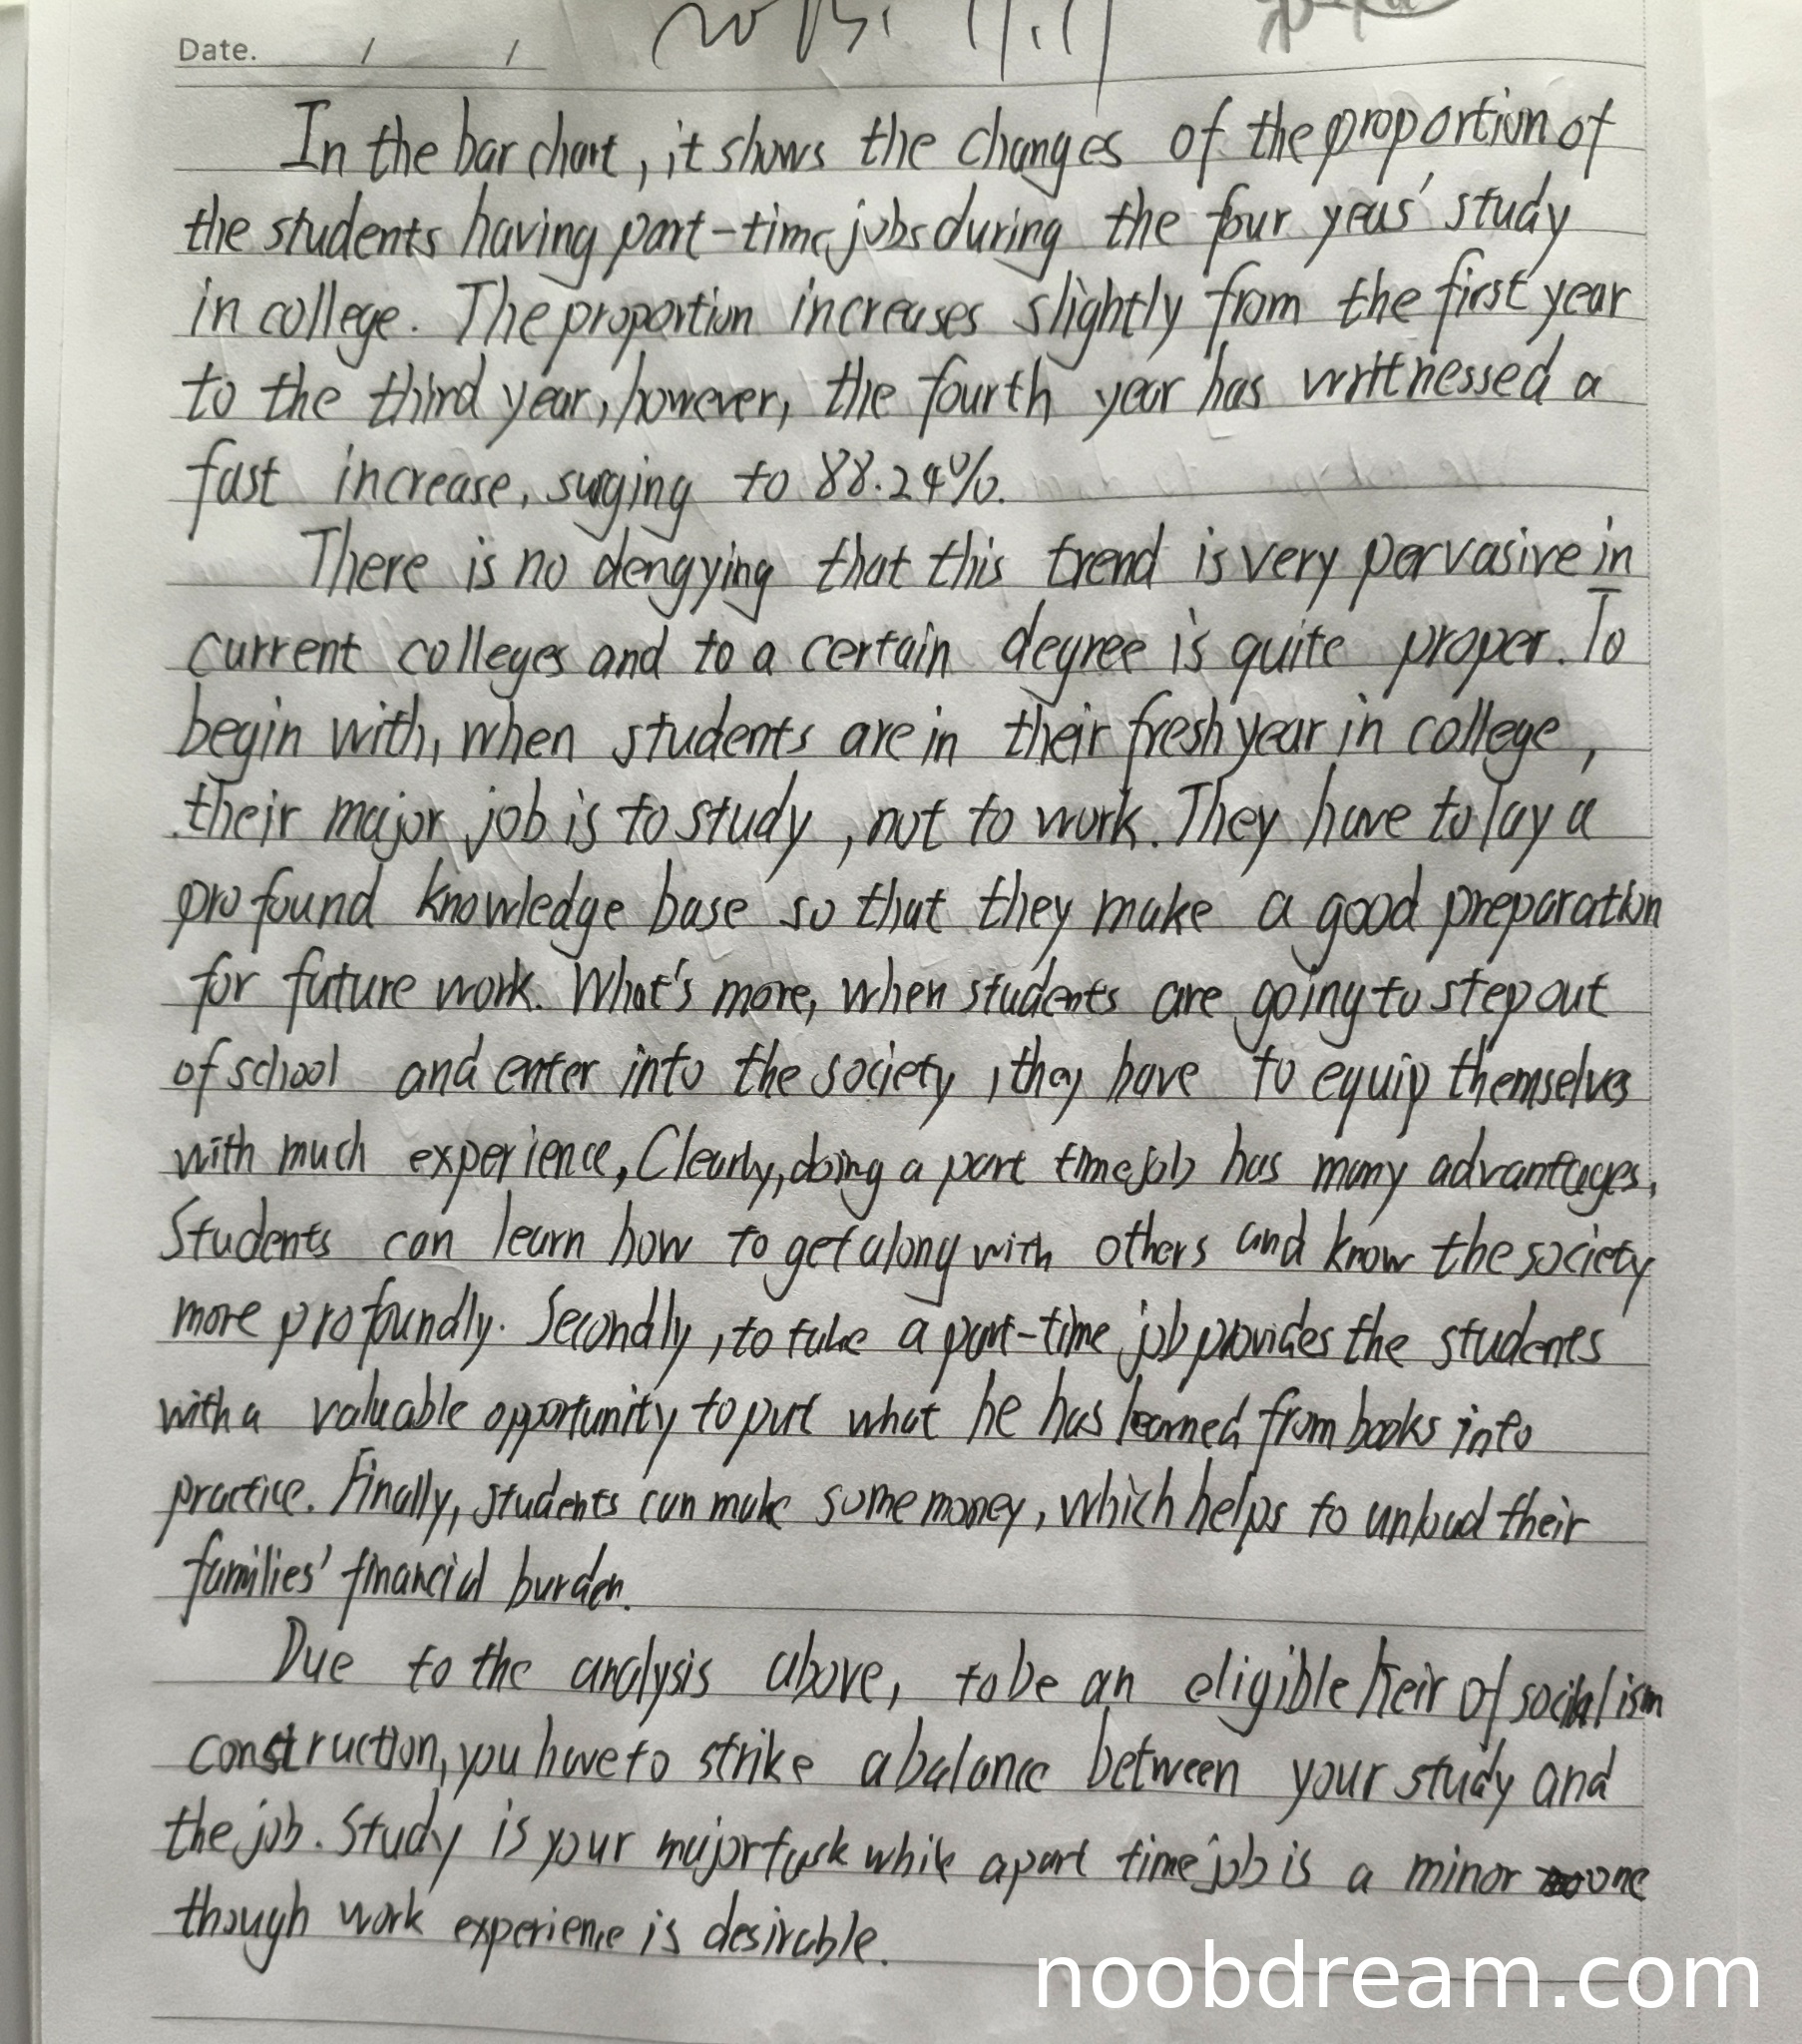 Date. / /
In the bar chart, it shows the changes of the proportion of
the students having part-time jobs during the four yeas' study
in college. The proportion increases slightly from the first year
to the third year, however, the fourth year has writtnessed a
fast increase, surging to 88.24%.
There is no dengying that this trend is very pervasive in
current colleges and to a certain degree is quite proper. To
begin with, when students are in their fresh year in college,
their major job is to study, not to work. They have to lay a
profound knowledge base so that they make a good preparation
for future work. What's more, when students are going to step out
of school and enter into the society, they have to equip themselves
with much experience, Clearly, doing a part time job has many advantages.
Students can learn how to get along with others and know the society
more profoundly. Secondly, to take a part-time job provides the students
with a valuable opportunity to put what he has learned from books into
practice. Finally, students can make some money, which helps to unload their
families' financial burden.
Due to the analysis above, to be an eligible heir of socialism
construction, you have to strike a balance between your study and
the job. Study is your major task while a part time job is a minor one
though work experience is desirable.
noobdream.com